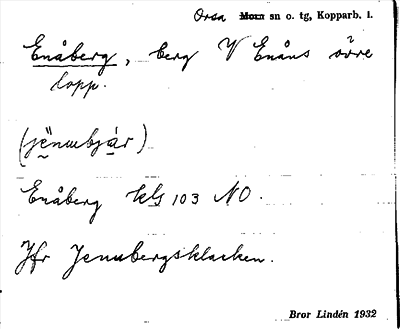 Orsa Mora sn o. tg, Kopparb. l.
Enåberg, berg V Enåns övre
lopp.
(jënubjár)
Enåberg kbl 103 NO.
Jfr Jenubergsklacken.
Bror Lindén 1932